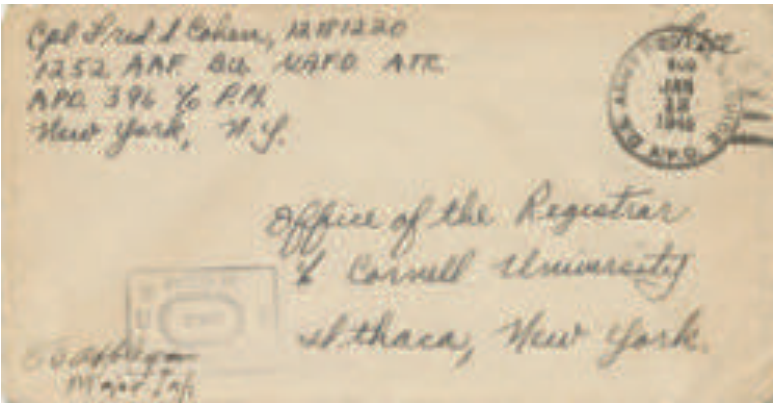 Cpl Fred S Cohen, 12181220
1252 AAF BU NAFD ATC
APO 396 % P.M.
New York, N.Y.
Free
JAN
12
1945
Office of the Registrar
% Cornell University
Ithaca, New York.
Major